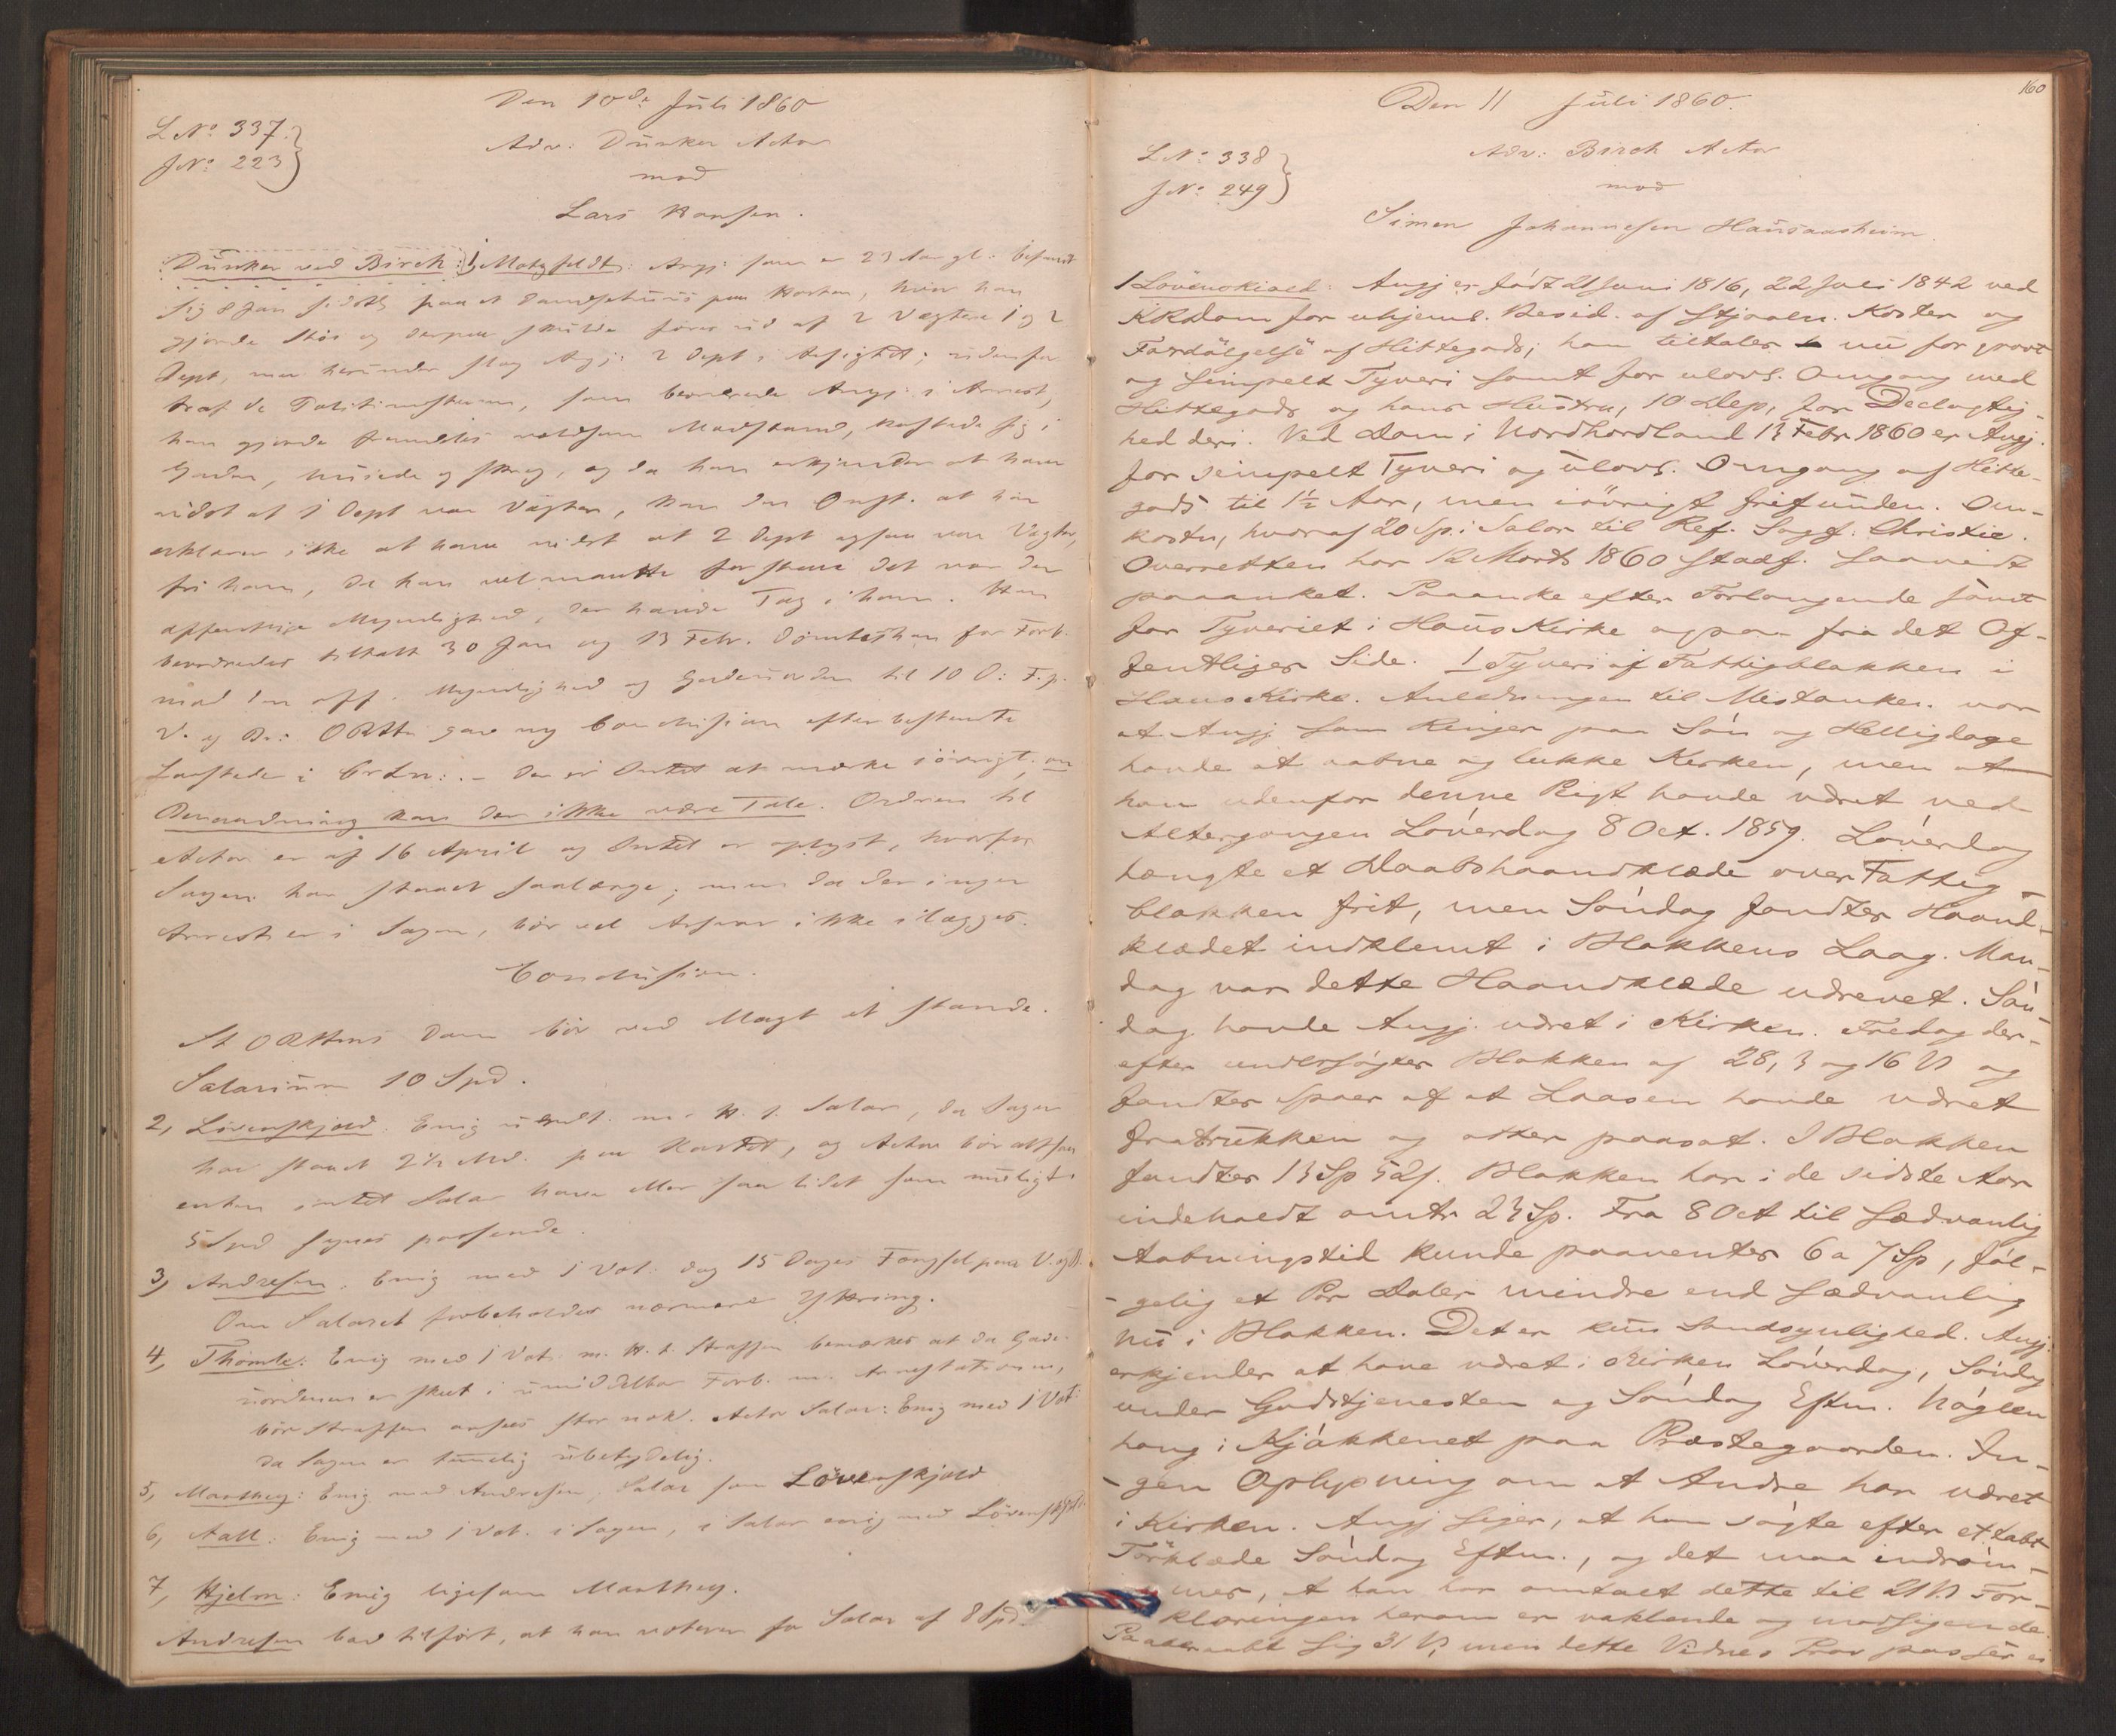 Den 10de Juli 1860
L No 337.
J No 223
Adv: Dunker Actor
mod
Lars Hansen.
Dunker ved Birch: 1, Motzfeldt: Angj: som er 23 Aar gl. befandt
sig 8 Jan sidstl paa et Dandsehuus paa, hvor han
gjorde Støi og derpaa skulde føres ud af 2 Vægtere 1 og 2
Dept, men herunder slog Angj: 2 Dept i Ansigtet; udenfor
traf de Politimesteren, som beordrede Angj: i Arrest,
han gjorde fremdeles voldsom Modstand, kastede sig i
Gaden, hujede og skreg, og da han erkjender at have
vidst at 1 Dept var Vægter, kan den Omst. at han
erklærer ikke at have vidst at 2 Dept ogsaa var Vægter,
fri ham, da han vel maatte forstaae det var den
offentlige Myndighed, der havde Tag i ham. Han
beordredes tiltalt 30 Jan og 13 Febr. dømtes han for Forb.
mod den off. Myndighed og Gadeuorden til 10 D: F. p.
V. og Br: ORtten gav ny Conclusion efter bestemte
Lovsteder i Crln: - Der er Intet at mærke iøvrigt, om
Benaadning kan der ikke være Tale. Ordren til
Actor er af 16 April og Intet er oplyst, hvorfor
Sagen har staaet saalænge; men da der ingen
Arrest er i Sagen, bør vel Ansvar ikke ilægges.
Conclusion.
St ORttens Dom bør ved Magt at stande.
Salarium 10 Spd.
2, Løvenskjold: Enig undt. m. H. t. Salar, da Sagen
har staaet 2½ Md. paa Kartet, og Actor bør altsaa
enten intet Salar have eller saa lidet som muligt.
5 Spd synes passende.
3, Andresen. Enig med 1 Vot: dog 15 Dages Fængsel paa V. og B.
Om Salaret forbeholdes nærmere Yttring.
4, Thomle: Enig med 1 Vot. m. H. t. Straffen bemærkes at da Gade-
uordenen er skeet i umiddelbar Forb. m. Arrestationen,
bør Straffen ansees stor nok. Actor Salar: Enig med 1 Vot:
da Sagen er temmelig ubetydelig.
5, Manthey: Enig med Andresen, Salar som Løvenskjold
6, Aall: Enig med 1 Vot. i Sagen, i Salar enig med Løvenskjold.
7, Hjelm: Enig ligesom Manthey.
Andresen bad tilført, at han voterer for Salar af 8 Spd.
160
Den 11 Juli 1860.
L No 338
J No 249
Adv: Birch Actor
mod
Simen Johannesen Hausaasheim.
1 Lövenskiold: Angj er födt 21 Juni 1816, 22 Juli 1842 ved
KRdom for uhjeml. Besid. af stjaaln. Koster og
Fordölgelse af Hittegods; han tiltales nu for grovt
og simpelt Tyveri samt for ulovl. Omgang med
Hittegods og hans Hustru, 10 Dep, for Deelagtig-
hed deri. Ved Dom i Nordhordland 13 Febr 1860 er Angj.
for simpelt Tyveri og ulovl. Omgang af Hitte-
gods til 1½ Aar, men iövrigt frifunden. Om-
kostn, hvoraf 20 Sp. i Salar til Ref. Sagf. Christie.
Overretten har 12 Marts 1860 stadf. saavidt
paaanket. Paaanke efter Forlangende samt
for Tyveriet i Haus Kirke ogsaa fra det Of-
fentliges Side. 1 Tyveri af Fattigblokken i
Haus Kirke. Anledningen til Mistanken var
at Angj som Ringer paa Sön og Helligdage
havde at aabne og lukke Kirken, men at
han udenfor denne Pligt havde været ved
Altergangen Löverdag 8 Oct. 1859. Löverdag
hængte et Daabshaandklæde over Fattig-
blokken frit, men Söndag fandtes Haand-
klædet indklemt i Blokkens Laag. Man-
dag var dette Haandklæde udrevet. Sön-
dag havde Angj. været i Kirken. Fredag der-
efter undersögtes Blokken af 28, 3 og 16 V og
fandtes Spoer af at Laasen havde været
fratrukken og atter paasat. I Blokken
fandtes 13 Sp 52 s. Blokken har i de sidste Aar
indeholdt omtr 23 Sp. Fra 8 Oct til sædvanlig
Aabningstid kunde paaventes 6 a 7 Sp, föl-
gelig et Par Daler mindre end sædvanlig
nu i Blokken. Det er kun Sandsynlighed. Angj.
erkjender at have været i Kirken Löverdag, Söndag
under Gudstjenesten og Söndag Eftm. Nöglen
hang i Kjökkenet paa Præstegaarden. In-
gen Oplysning om at Andre har været
i Kirken. Angj siger, at han sögte efter et tabt
Törklæde Söndag Eftm., og det maa indröm-
mes, at han har omtalt dette til 21 V. For-
klaringen herom er vaklende og modsigende.
Paaberaabt sig 31 V, men dette Vidnes Prov passer ei